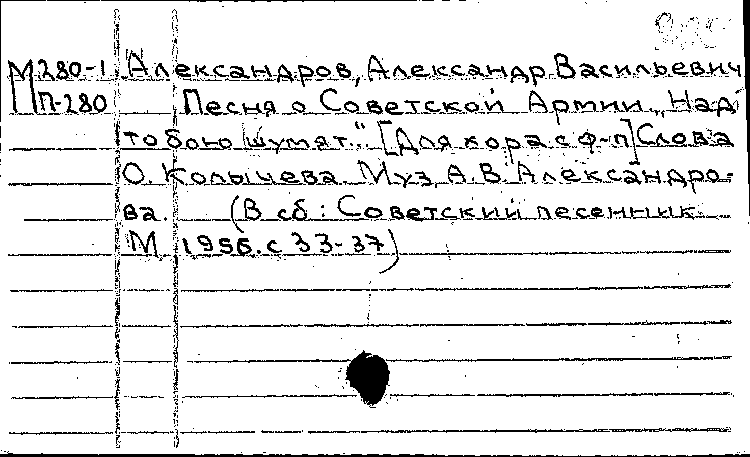 М280-1 Александров, Александр Васильевич
П-280 Песня о Советской Армии „Над
тобою шумят." [Для хора с ф-п] Слова
О. Колычева. Муз. А.В. Александро-
ва. (В сб: Советский песенник.
М 1956. с 33-37)